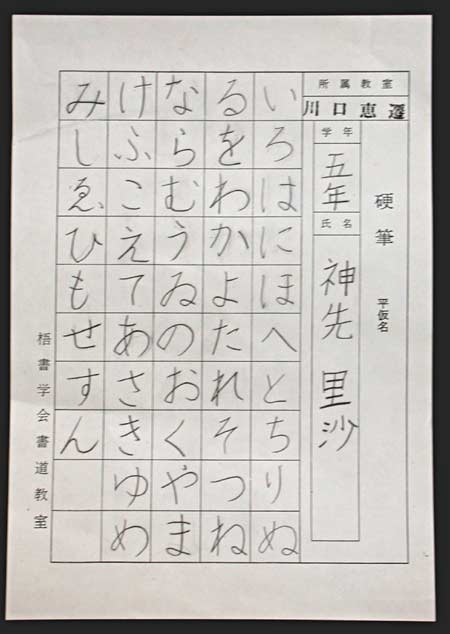 硬筆 平仮名
所属教室
川口恵遷
学年
五年
氏名
神先 里沙
いろはにほへとちりぬ
るをわかよたれそつね
ならむうゐのおくやま
けふこえてあさきゆめ
みしゑひもせすん
梧書学会書道教室